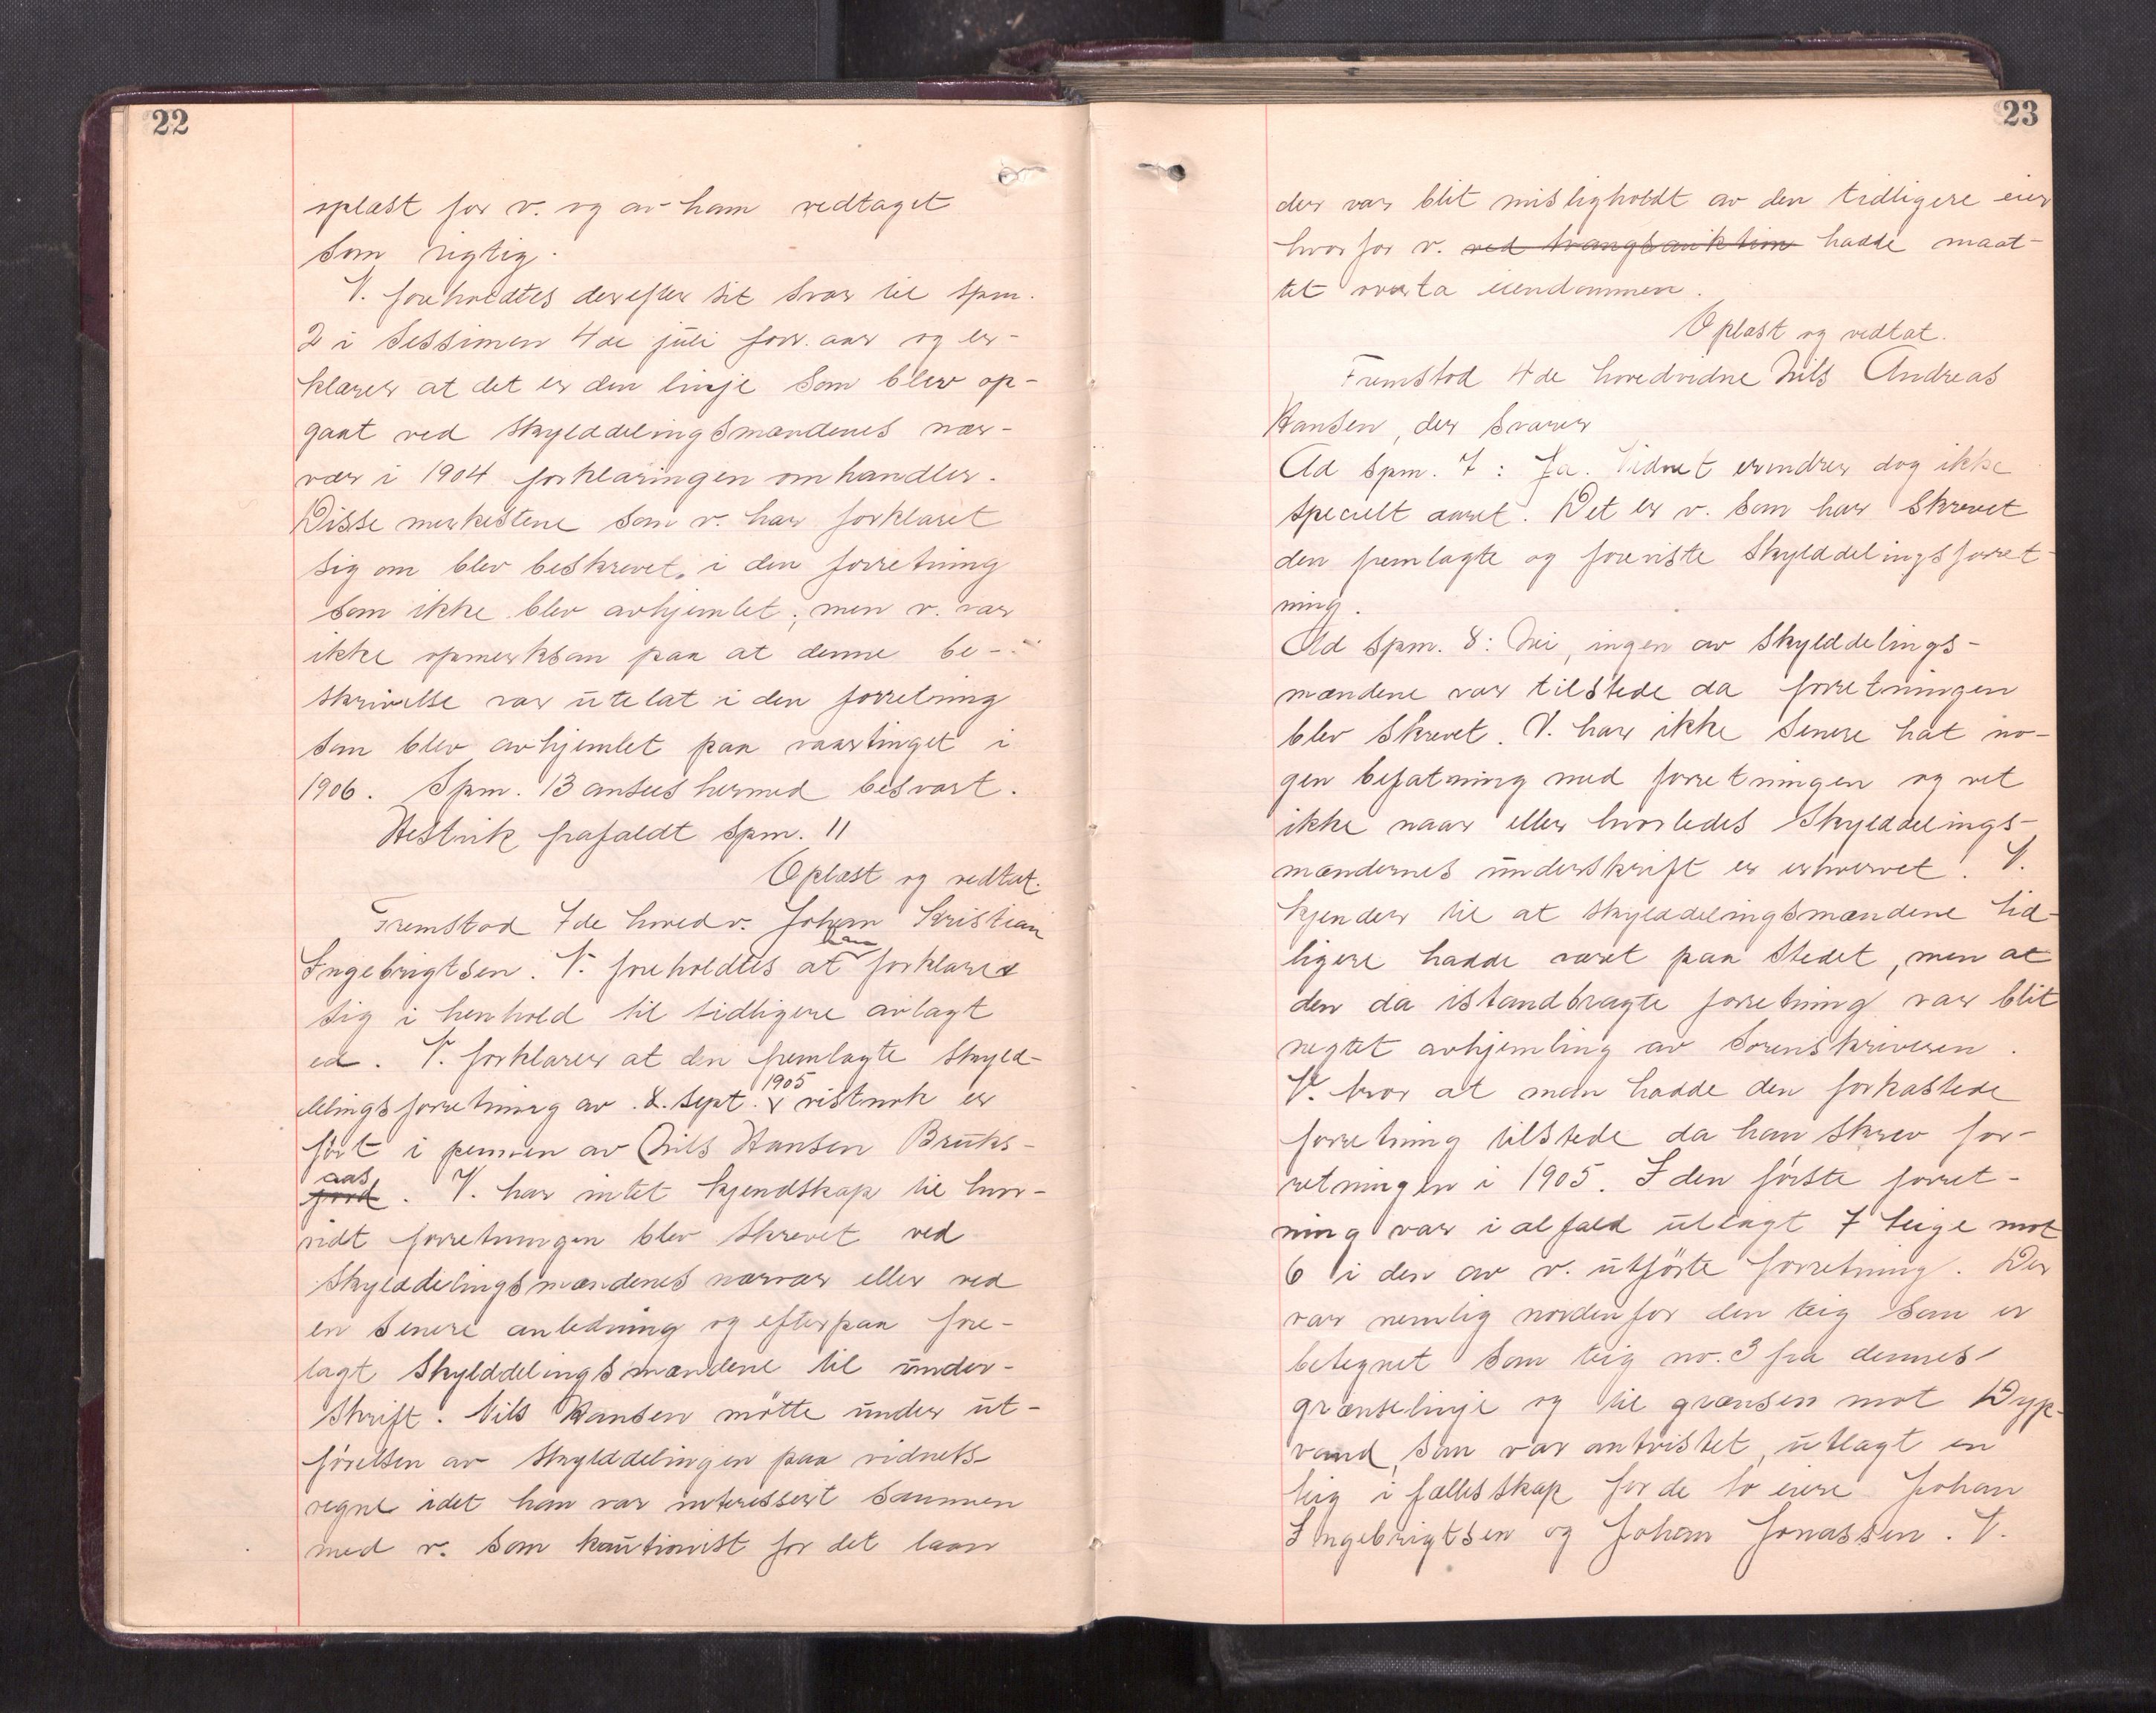 22
oplæst for v. og av ham vedtaget
som rigtig.
V. foreholdtes derefter sit svar til spm.
2 i sessionen 4de juli forr. aar og er-
klærer at det er den linje som blev op-
gaat ved skylddelingsmændenes nær-
vær i 1904 forklaringen omhandler.
Disse merkestene som v. har forklaret
sig om blev beskrevet i den forretning
som ikke blev avhjemlet; men v. var
ikke opmerksom paa at denne be-
skrivelse var utelat i den forretning
som blev avhjemlet paa vaartinget i
1906. Spm. 13 ansees hermed besvart.
Hestvik frafaldt spm. 11
Oplæst og vedtat.
Fremstod 7de hovedv. Johan Kristian
Ingebrigtsen. V. foreholdtes at han forklarer
sig i henhold til tidligere avlagt
ed. V. forklarer at den fremlagte skyld-
delingsforretning av 8. sept. 1905 vistnok er
ført i pennen av Nils Hansen Bruks-
fjord aas. V. har intet kjendskap til hvor-
vidt forretningen blev skrevet ved
skylddelingsmændenes nærvær eller ved
en senere anledning og efterpaa fore-
lagt skylddelingsmændene til under-
skrift. Nils Hansen møtte under ut-
førelsen av skylddelingen paa vidnets
vegne idet han var interessert sammen
med v. som kautionist for det laan
23
der var blit misligholdt av den tidligere eier
hvorfor v. ved tvangsauktion hadde maat-
tet overta eiendommen.
Oplæst og vedtat.
Fremstod 4de hovedvidne Nils Andreas
Hansen, der svarer
Ad spm. 7: Ja. Vidnet erindrer dog ikke
specielt aaret. Det er v. som har skrevet
den fremlagte og foreviste skylddelingsforret-
ning.
Ad spm. 8: Nei, ingen av skylddelings-
mændene var tilstede da forretningen
blev skrevet. V. har ikke senere hat no-
gen befatning med forretningen og vet
ikke naar eller hvorledes skylddelings-
mændernes underskrift er erhvervet. V.
kjender til at skylddelingsmændene tid-
ligere hadde været paa stedet, men at
den da istandbragte forretning var blit
negtet avhjemling av Sorenskriveren.
V. tror at man hadde den forkastede
forretning tilstede da han skrev for-
retningen i 1905. I den første forret-
ning var ialfald utlagt 7 teige mot
6 i den av v. utførte forretning. Der
var nemlig nordenfor den teig som er
betegnet som teig no. 3 fra dennes
grænselinje og til grænsen mot Dyp-
vand, som var omtvistet, utlagt en
teig i fællesskap for de to eiere Johan
Ingebrigtsen og Johan Jonassen. V.